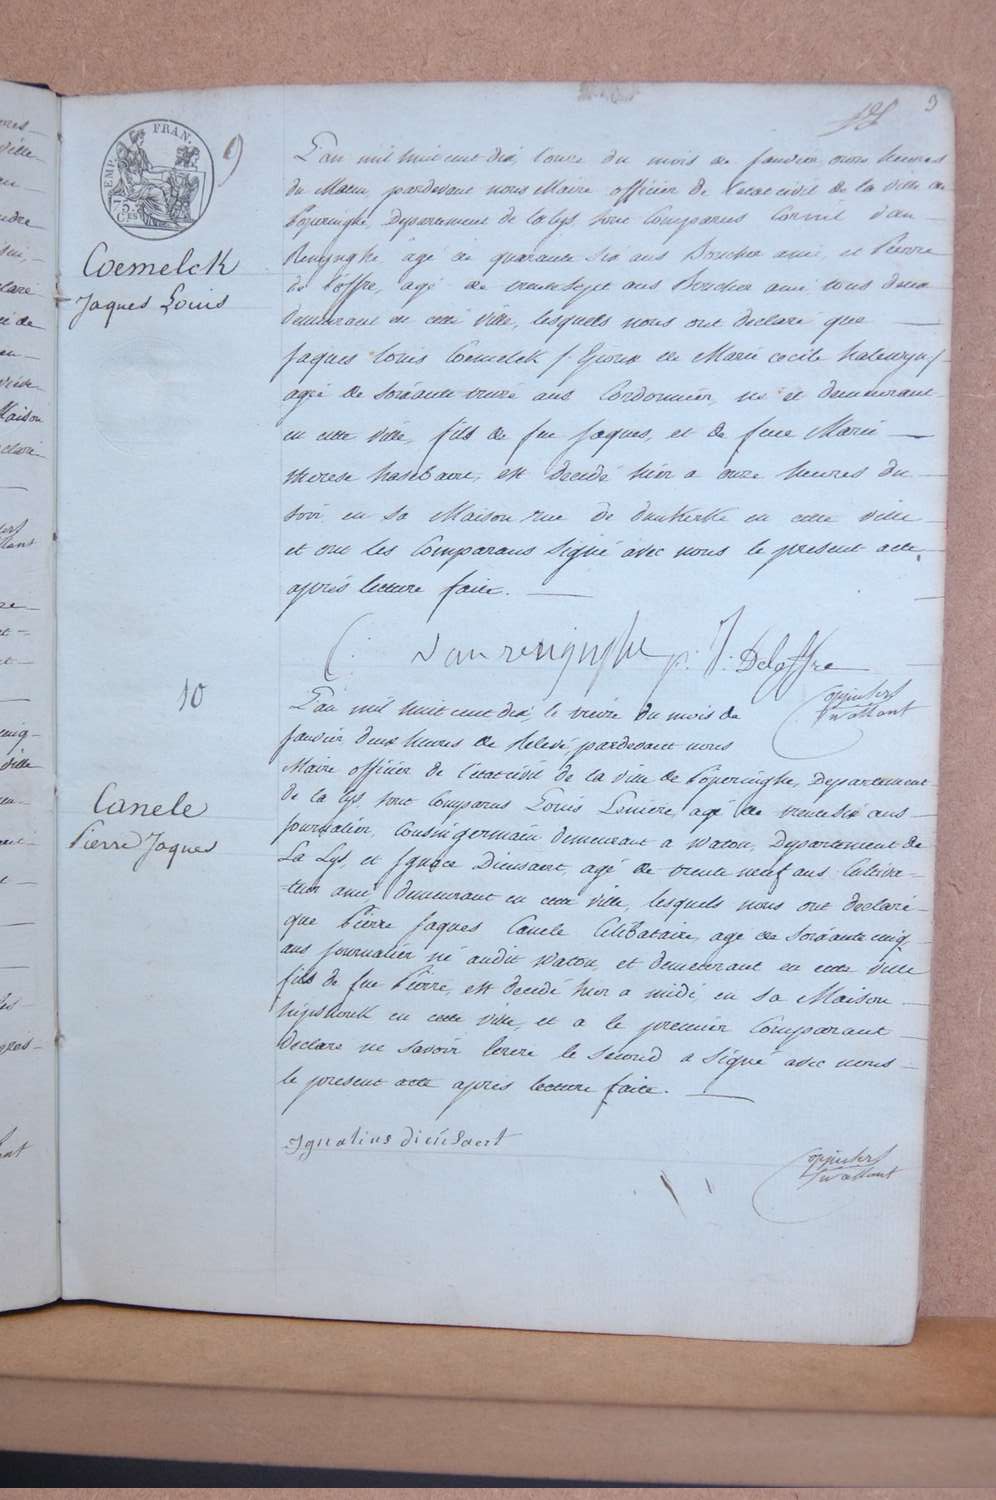 3
EMP. FRAN.
75 Ces
9
Coemelck
Jaques Louis
L'an mil huit cent dix, l'onze du mois de Janvier onze heures
du Matin, pardevant nous Maire officier de l'etat civil de la ville de
Poperinghe, Departement de la Lys, sont Comparus Cornil Van
Renynghe, agé de quarante six ans Boucher ami, et Pierre
de Loffre, agé de trente sept ans Boucher ami tous deux
demeurant en cette ville, lesquels nous ont declaré que
Jaques Louis Coemelck / Epoux de Marie Cecile halewyn /
agé de soixante treize ans Cordonnier, né et demeurant
en cette ville, fils de feu Jaques, et de feue Marie
therese hasebaert, est decedé hier a onze heures du
soir en sa Maison rue de dunkerke en cette ville
et ont les Comparans Signé avec nous le present acte
après lecture faite.
C: vanrenijnghe p: J: Deloffre
10
Canele
Pierre Jaques
L'an mil huit cent dix, le treize du mois de
Janvier, deux heures de Relevé, pardevant nous
Maire officier de l'etat civil de la ville de Poperinghe, Departement
de la Lys, sont Comparus Louis agé de trente six ans
journalier, Cousin germain demeurant a Watou, Departement de
La Lys, et Ignace Dieusaert, agé de trente neuf ans Cultiva-
-teur ami demeurant en cette ville, lesquels nous ont declaré
que Pierre Jaques Canele Celibataire, agé de soixante cinq
ans journalier né audit Watou, et demeurant en cette ville
fils de feu Pierre, est decedé hier a midi, en sa Maison
en cette ville, et a le premier Comparant
declaré ne savoir ecrire le second a signé avec nous
le present acte après lecture faite.
Ignatius dieusaert